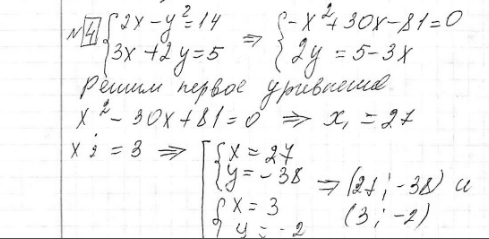 № 4 { 2x - y² = 14 ⇒ { -x² + 30x - 81 = 0
{ 3x + 2y = 5 { 2y = 5 - 3x
Решим первое уравнение
x² - 30x + 81 = 0 ⇒ x₁ = 27
x₂ = 3 ⇒ [ { x = 27
{ y = -38 ⇒ (27; -38) и
{ x = 3 (3; -2)
{ y = -2